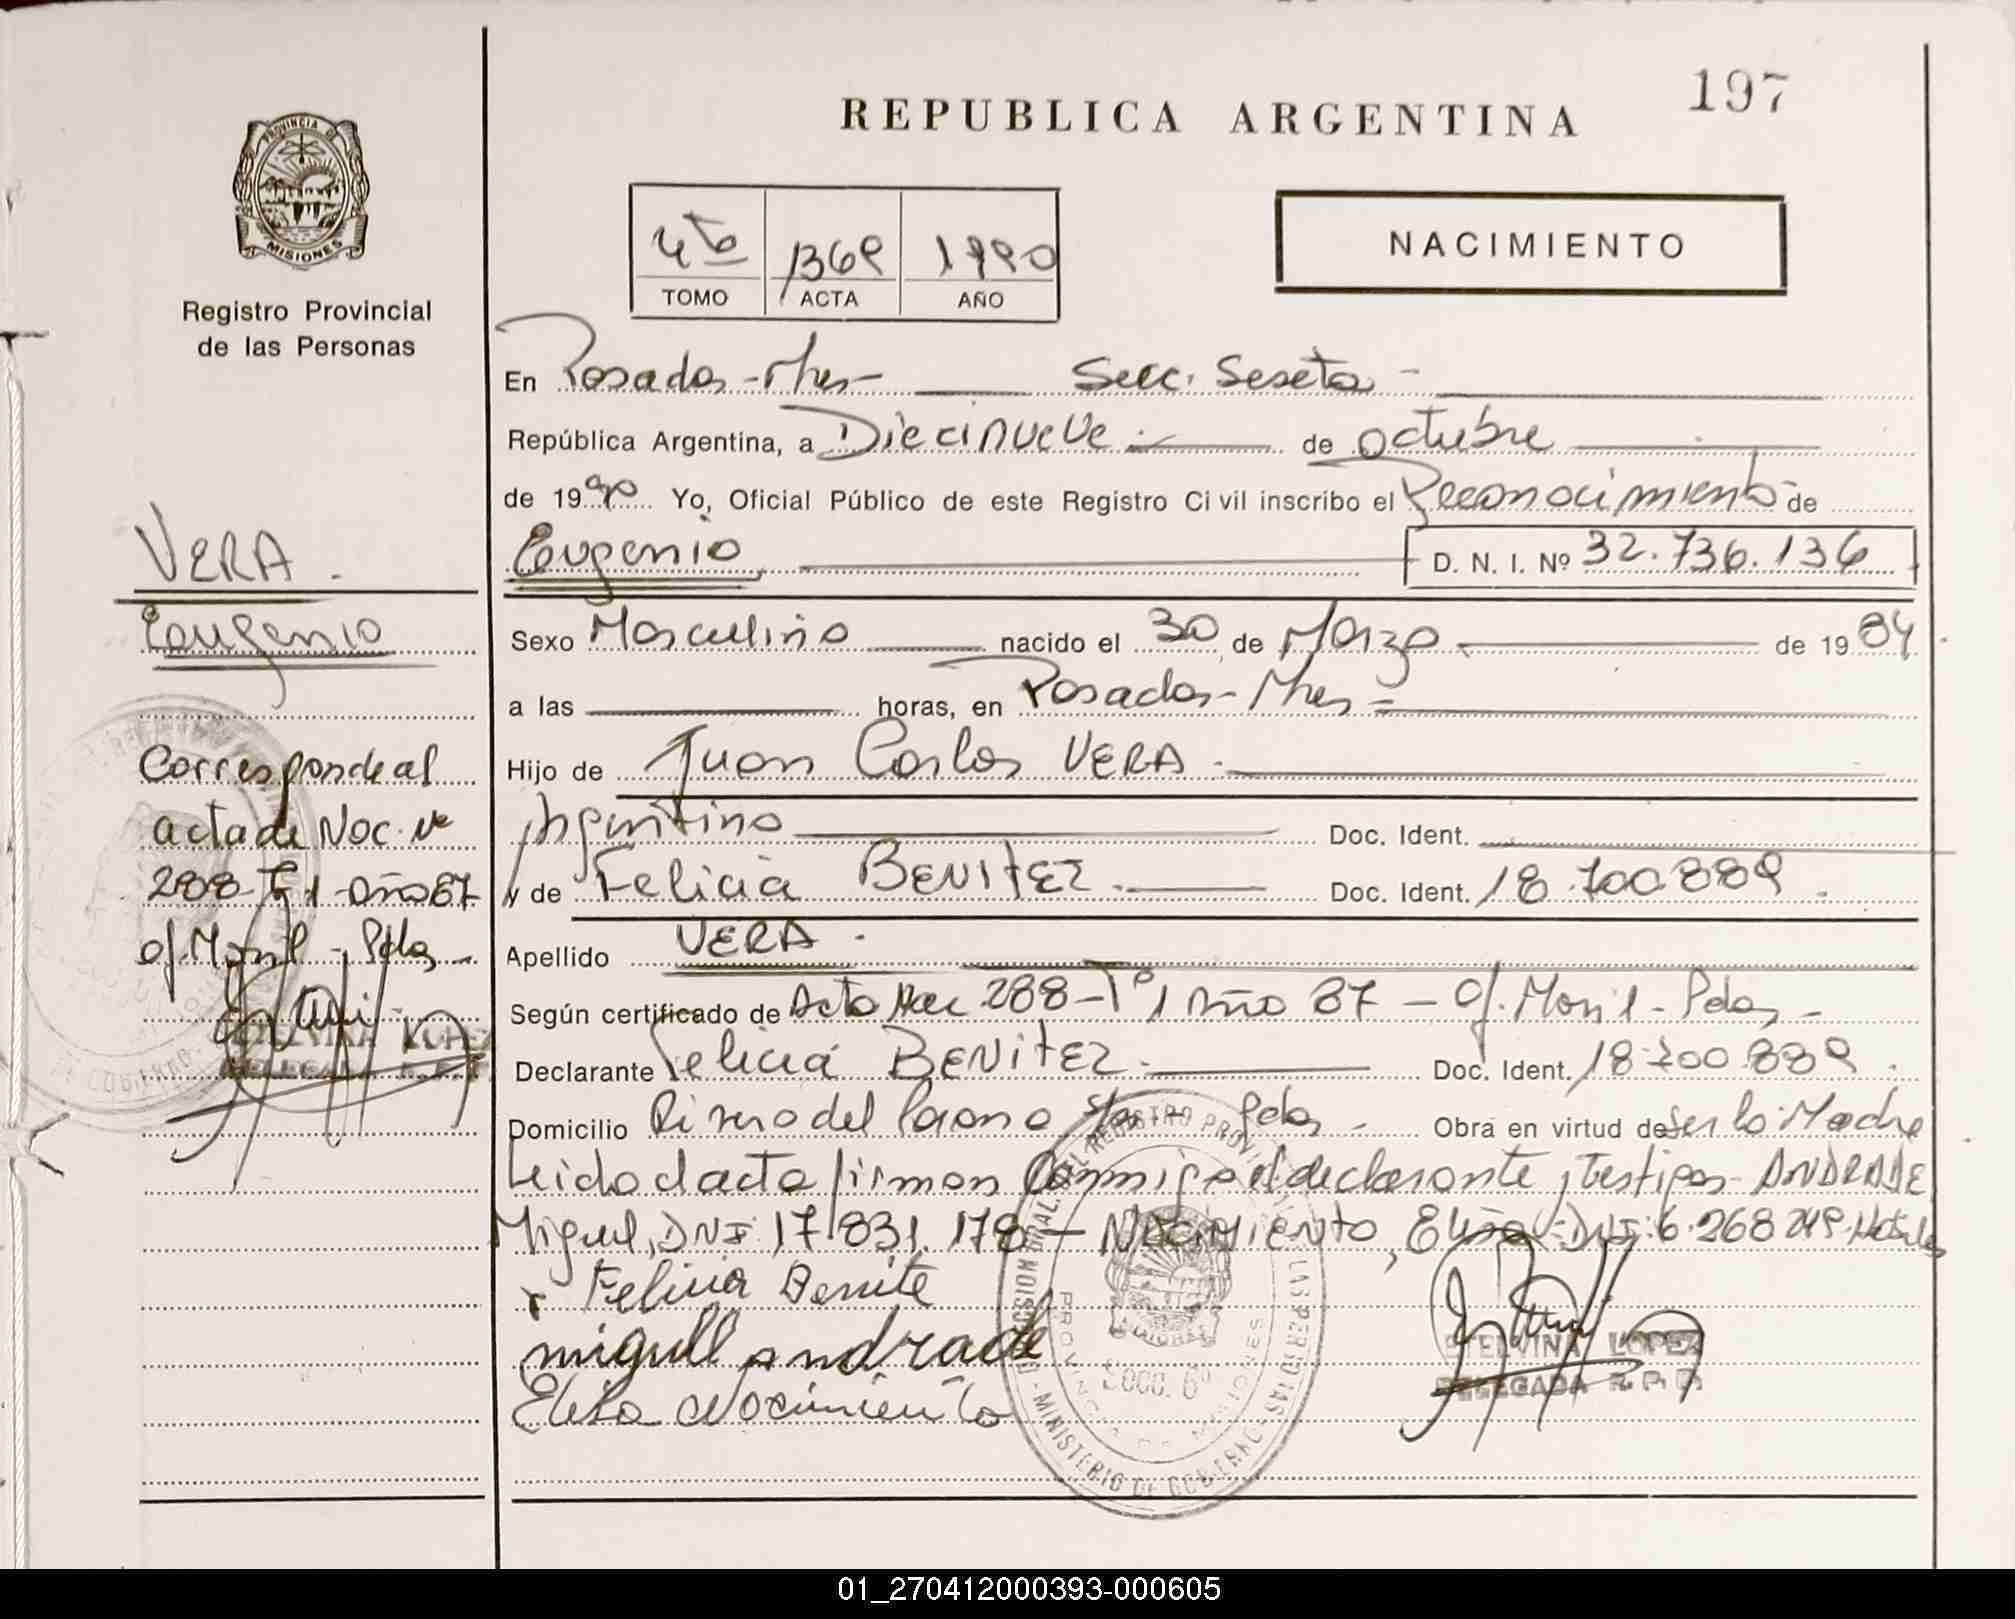 197
REPUBLICA ARGENTINA
PROVINCIA DE
MISIONES
Registro Provincial
de las Personas
4to 1369 1990
TOMO ACTA AÑO
NACIMIENTO
En Posadas-Mnes- Secc. Sexta -
República Argentina, a Diecinueve.- de octubre
de 1990 Yo, Oficial Público de este Registro Civil inscribo el Reconocimiento de
Eugenio D. N. I. Nº 32.736.136
Sexo Masculino nacido el 30 de Marzo de 1984
a las horas, en Posadas-Mnes-
Hijo de Juan Carlos VERA.
Argentino Doc. Ident.
y de Felicia BENITEZ.- Doc. Ident. 18.700.889.
Apellido VERA.
Según certificado de Acta Nac 288-Tº 1 Año 87 - Of. Movil - Pdas -
Declarante Felicia BENITEZ.- Doc. Ident. 18.700.889.
Domicilio Pdas - Obra en virtud de Ser la Madre
Leido el acta firman Conmigo el declarante y testigos- ANDRADE
Miguel, DNI: 17.831.178 - NACIMIENTO, Elisa - DNI: 6.268.249
x Felicia Benite
miguel andrade
Elisa Nacimiento
ESTELVINA LOPEZ
DELEGADA R.P.P.
VERA.
Eugenio
Corresponde al
acta de Nac. Nº
288-Tº 1 Año 87
of. Movil - Pdas -
ESTELVINA LOPEZ
DELEGADA R.P.P.
MINISTERIO DE GOBIERNO
SECC. 6ª
PROVINCIA DE MISIONES
01_270412000393-000605